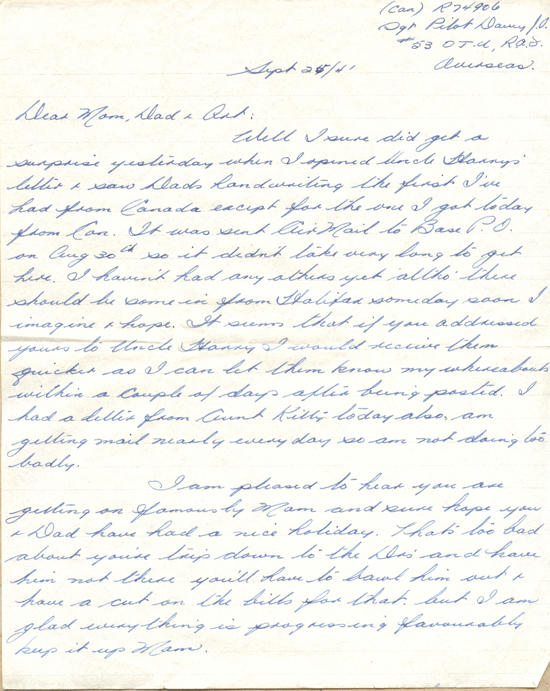 (Can) R74906
Sgt Pilot Davey J.O.
# 53 O.T.U, R.A.F.
Overseas.
Sept 25/41
Dear Mom, Dad & Art:
Well I sure did get a
surprise yesterday when I opened Uncle Harrys'
letter & saw Dads handwriting the first I've
had from Canada except for the one I got today
from Can. It was sent Air Mail to Base P.O.
on Aug 30th so it didn't take very long to get
here. I haven't had any others yet altho' there
should be some in from Halifax someday soon I
imagine & hope. It seems that if you addressed
yours to Uncle Harry I would receive them
quicker as I can let them know my whereabouts
within a couple of days after being posted. I
had a letter from Aunt Kitty today also, am
getting mail nearly every day so am not doing too
badly.
I am pleased to hear you are
getting on famously Mom and sure hope you
& Dad have had a nice holiday. Thats too bad
about you're trip down to the Drs' and have
him not there you'll have to bawl him out &
have a cut on the bills for that. but I am
glad everything is progressing favourably
keep it up Mom.